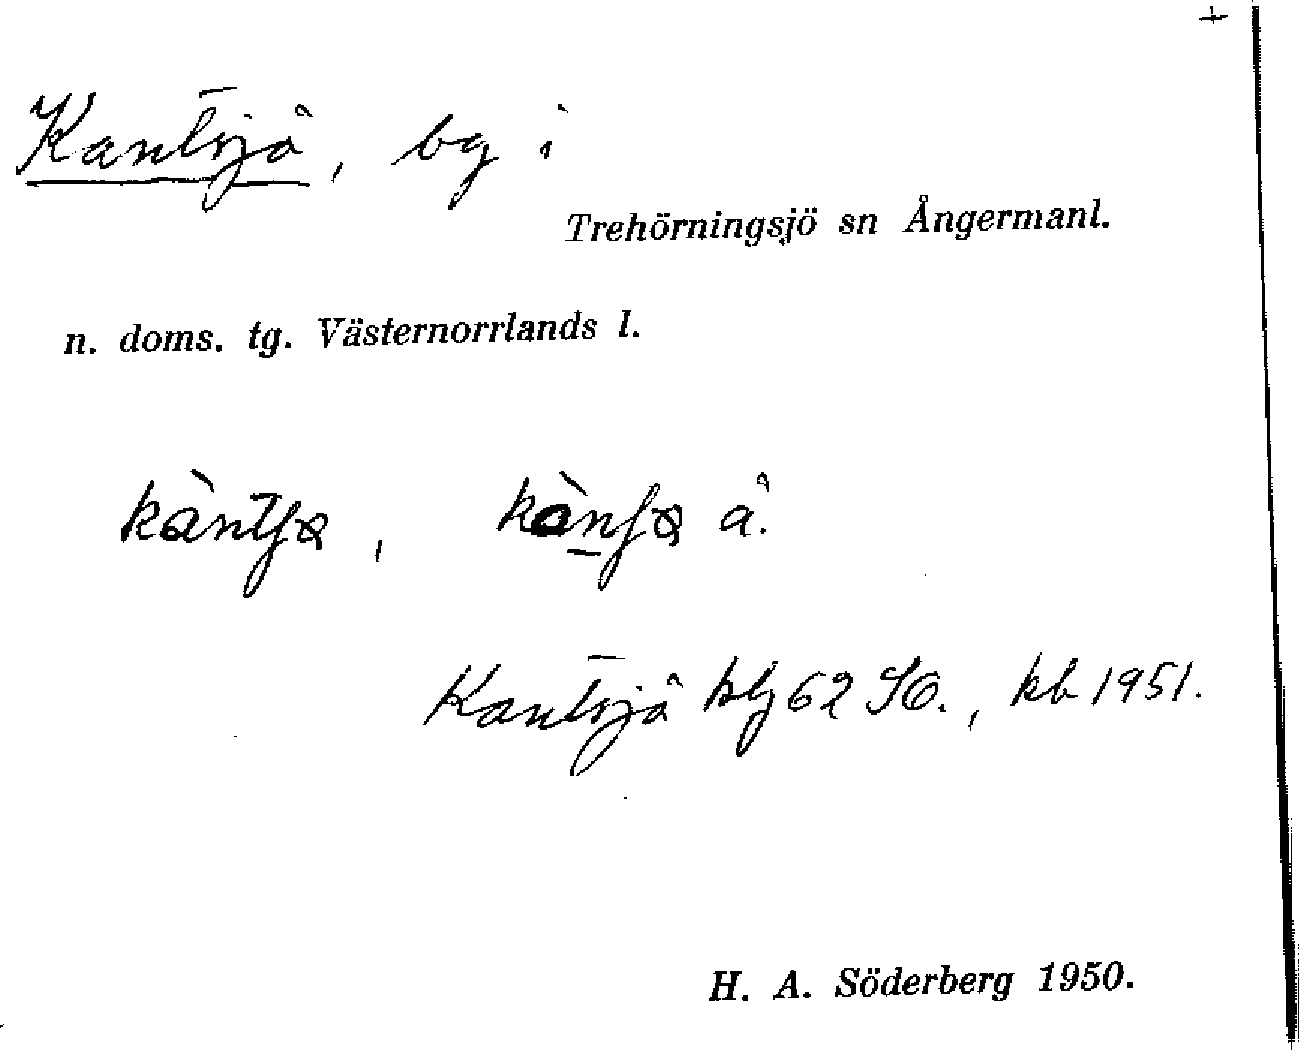 +
Kantsjå, by i
Trehörningsjö sn Ångermanl.
n. doms. tg. Västernorrlands l.
å.
Kantsjå 62 SO., kb 1951.
H. A. Söderberg 1950.